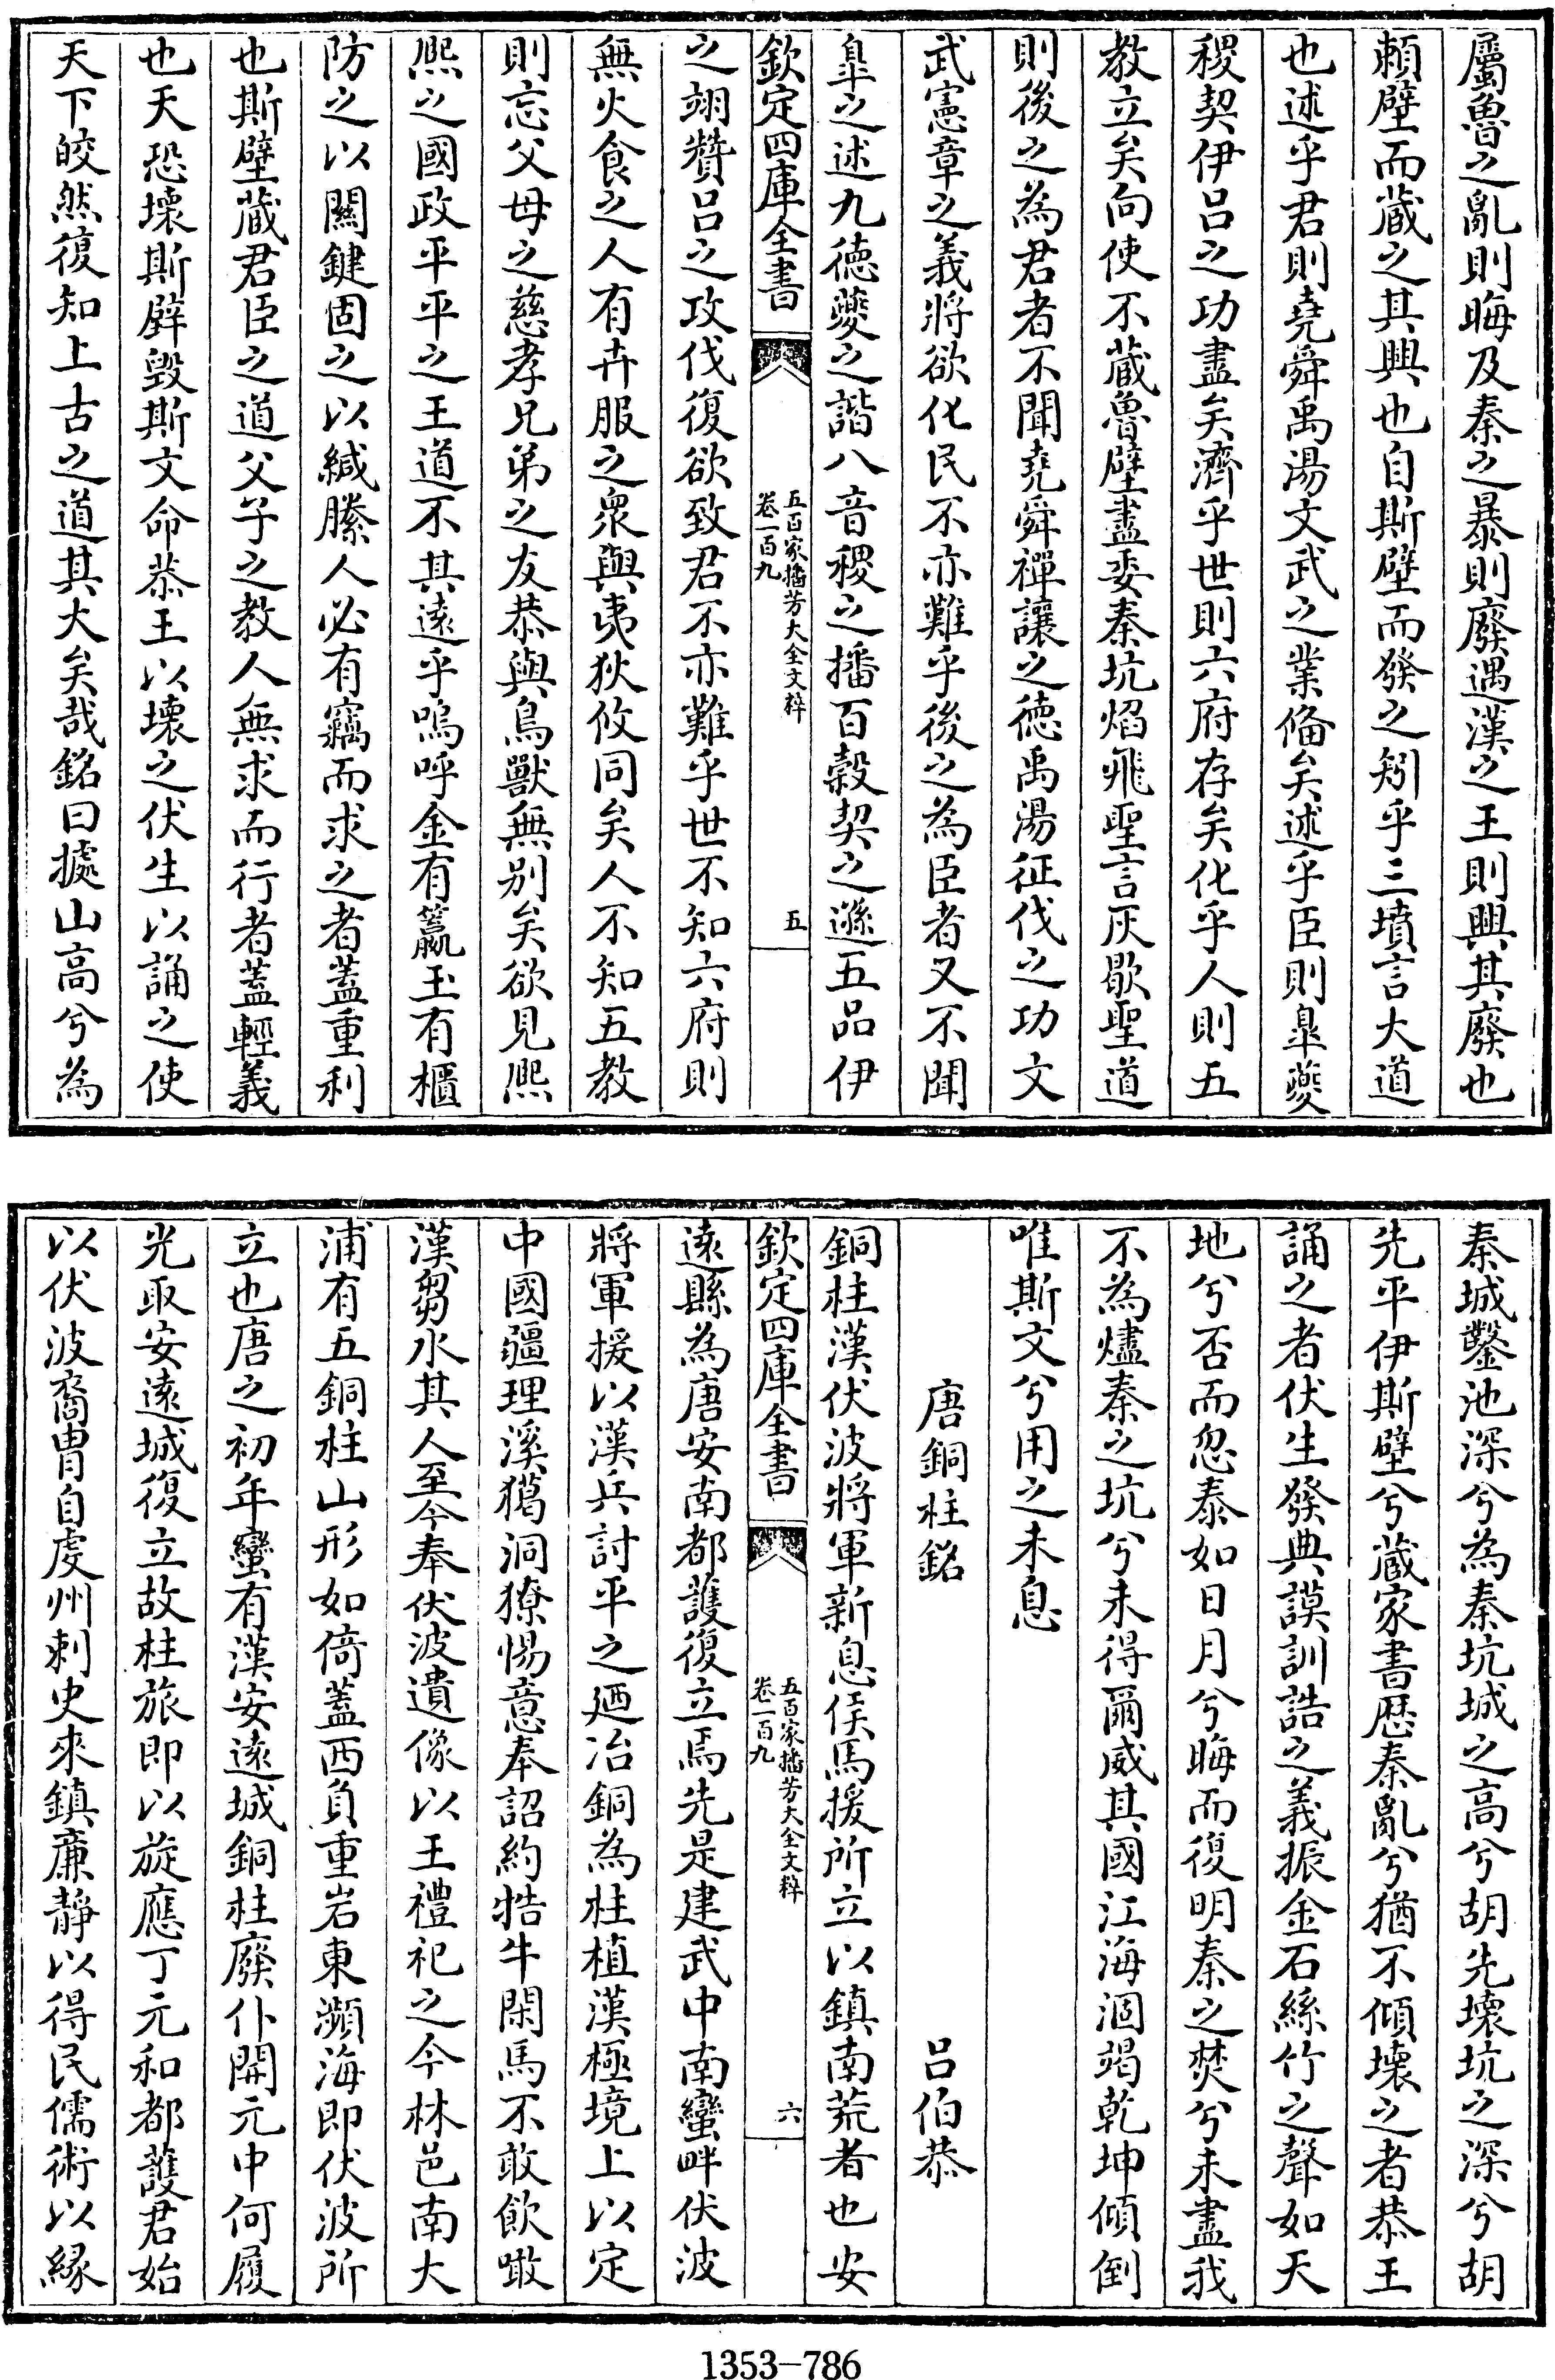 屬魯之亂則晦及秦之暴則廢遇漢之王則興其廢也
頼壁而藏之其興也自斯壁而發之矧乎三墳言大道
也述乎君則堯舜禹湯文武之業偹矣述乎臣則臯夔
稷契伊吕之功盡矣濟乎世則六府存矣化乎人則五
教立矣向使不藏魯壁盡委秦坑焰飛聖言灰歇聖道
則後之為君者不聞堯舜禪讓之徳禹湯征伐之功文
武憲章之義將欲化民不亦難乎後之為臣者又不聞
臯之述九徳夔之諧八音稷之播百榖契之遜五品伊
欽定四庫全書
五百家播芳大全文粹
卷一百九
五
之翊贊吕之攻伐復欲致君不亦難乎世不知六府則
無火食之人有卉服之衆與夷狄攸同矣人不知五教
則忘父母之慈孝兄弟之友恭與鳥獸無别矣欲見熈
熈之國政平平之王道不其遠乎嗚呼金有籯玉有櫃
防之以關鍵固之以緘縢人必有竊而求之者蓋重利
也斯壁藏君臣之道父子之教人無求而行者蓋輕義
也天恐壊斯壁毁斯文命恭王以壊之伏生以誦之使
天下皎然復知上古之道其大矣哉銘曰據山高兮為
秦城鑿池深兮為秦坑城之高兮胡先壊坑之深兮胡
先平伊斯壁兮藏家書歴秦亂兮猶不傾壊之者恭王
誦之者伏生發典謨訓誥之義振金石絲竹之聲如天
地兮否而忽泰如日月兮晦而復明秦之焚兮未盡我
不為燼秦之坑兮未得爾威其國江海涸竭乾坤傾倒
唯斯文兮用之未息
唐銅柱銘 吕伯恭
銅柱漢伏波將軍新息侯馬援所立以鎮南荒者也安
欽定四庫全書
五百家播芳大全文粹
卷一百九
六
遠縣為唐安南都護復立焉先是建武中南蠻畔伏波
將軍援以漢兵討平之廼冶銅為柱植漢極境上以定
中國疆理溪獦洞獠惕意奉詔約牿牛閑馬不敢飲噉
漢芻水其人至今奉伏波遺像以王禮祀之今林邑南大
浦有五銅柱山形如倚蓋西負重岩東瀕海即伏波所
立也唐之初年蠻有漢安遠城銅柱廢仆開元中何履
光取安遠城復立故柱旅即以旋應丁元和都護君始
以伏波裔胄自䖍州刺史來鎮廉靜以得民儒術以緣
1353-786